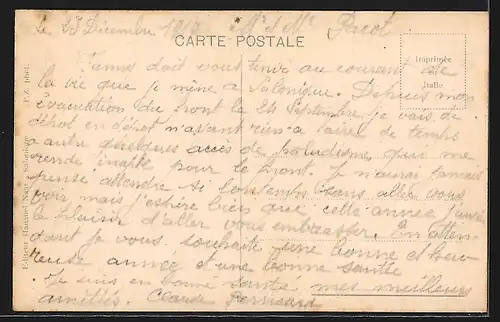 le 23 Décembre 191 Mr et Me Pacot
CARTE POSTALE
Imprimée
Italie
Fanny doit vous tenir au courant de
la vie que je mène à Salonique. Depuis mon
évacuation du front le 24 Septembre je vais de
dépot en dépôt n'ayant rien a faire de temps
a autre quelques accès de paludisme qui me
rende inapte pour le front. Je n'aurai jamais
pensé attendre si longtemps sans aller vous
voir mais j'espère bien que cette année j'aurai
le plaisir d'aller vous embrasser. En atten-
dant je vous souhaite une bonne et heu-
reuse année et une bonne santé
Je suis en bonne santé mes meilleurs
amitiés. Claude
Editeur Hananel Naar, Salonique P.Z.